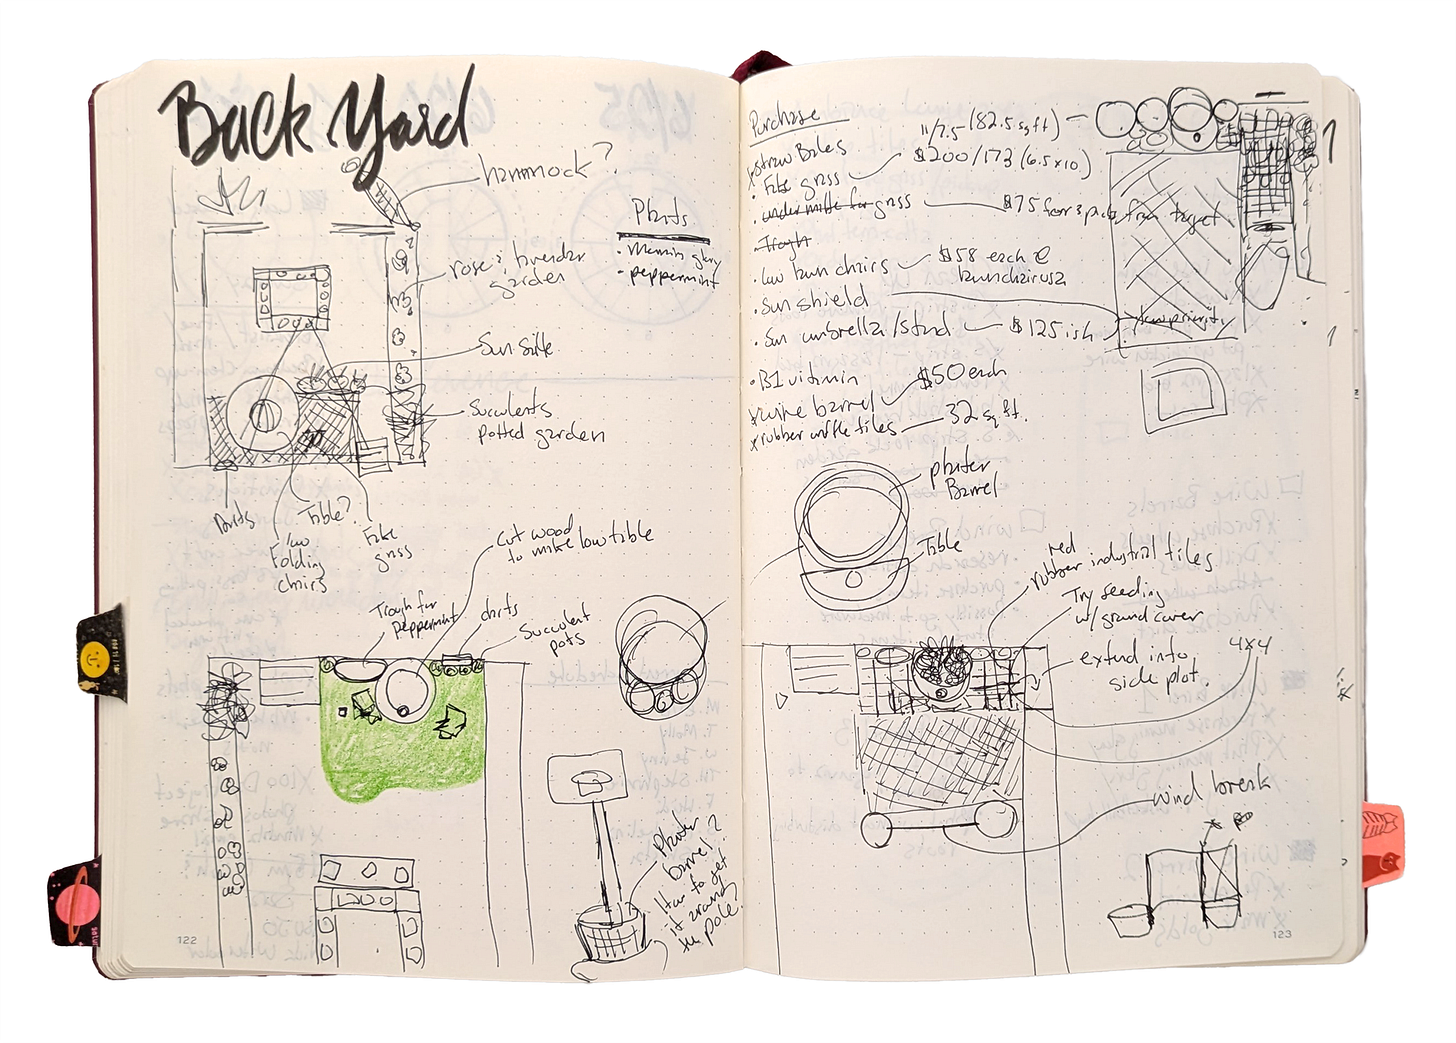 Back Yard
hammock?
Plants
morning glory
peppermint
rose & lavender
garden
Sun side
Succulents
potted garden
darts
low
Folding
chairs
Table?
Fake
grass
cut wood
to make low table
Trough for
peppermint
darts
Succulent
pots
Planter
barrel?
How to get
it around
the pole?
122
Purchase
11/7.5 (82.5 sq ft)
x straw Bales
· Fake grass
$200/173 (6.5x10)
grass
$75 for 3 pack from target
· Trough
· low lawn chairs
$58 each @
lawnchairusa
· Sun shield
low priority
· Sun umbrella/stand
$125 ish
· B1 vitmin
x wine barrel
$50 each
x rubber waffle tiles
32 sq. ft.
planter
Barrel
Table
red
rubber industrial tiles
Try seeding
w/ ground cover
extend into
side plot.
4x4
wind break
123